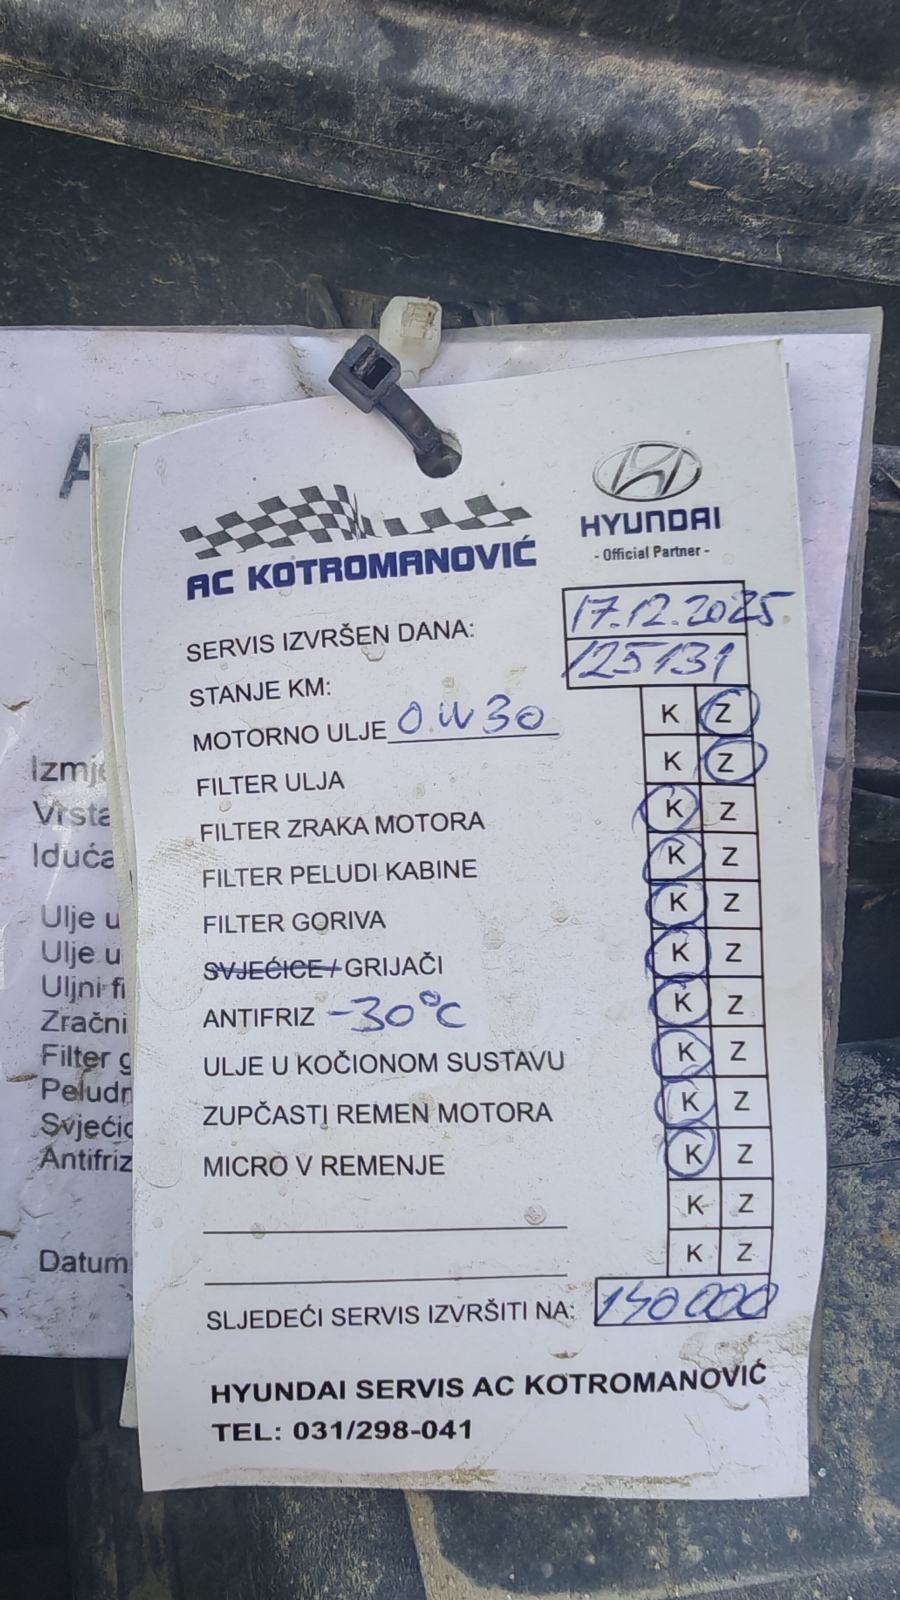 AC KOTROMANOVIĆ
HYUNDAI
- Official Partner -
SERVIS IZVRŠEN DANA: 17.12.2025.
STANJE KM: 125131
MOTORNO ULJE 0W30 K Z
FILTER ULJA K Z
FILTER ZRAKA MOTORA K Z
FILTER PELUDI KABINE K Z
FILTER GORIVA K Z
SVJEĆICE/GRIJAČI K Z
ANTIFRIZ -30°C K Z
ULJE U KOČIONOM SUSTAVU K Z
ZUPČASTI REMEN MOTORA K Z
MICRO V REMENJE K Z
K Z
K Z
SLJEDEĆI SERVIS IZVRŠITI NA: 140000
HYUNDAI SERVIS AC KOTROMANOVIĆ
TEL: 031/298-041
A
Izmj
Vrsta
Iduća
Ulje u
Ulje u
Uljni fi
Zračni
Filter g
Peludn
Svjećic
Antifriz
Datum